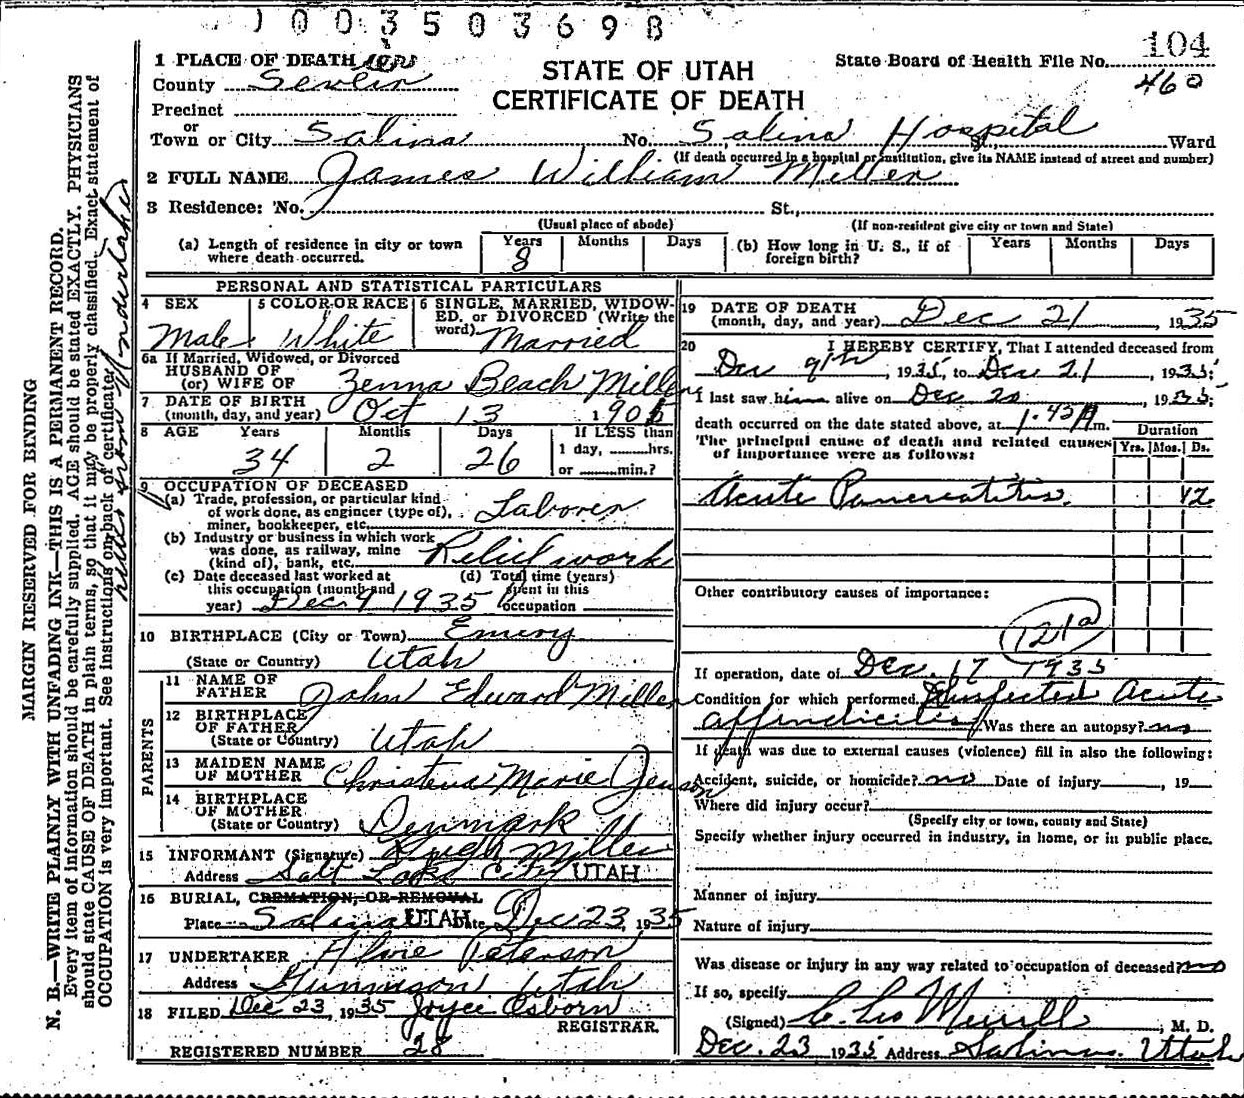 1003503698
104
460
1 PLACE OF DEATH
State Board of Health File No.
STATE OF UTAH
CERTIFICATE OF DEATH
County Sevier
Precinct
or
Town or City Salina No. Salina Hospital St., Ward
(If death occurred in a hospital or institution, give its NAME instead of street and number)
2 FULL NAME James William Miller
3 Residence: No. St.,
(Usual place of abode) (If non-resident give city or town and State)
(a) Length of residence in city or town where death occurred. Years 8 Months Days
(b) How long in U. S., if of foreign birth? Years Months Days
PERSONAL AND STATISTICAL PARTICULARS
4 SEX Male
5 COLOR OR RACE White
6 SINGLE, MARRIED, WIDOWED. or DIVORCED (Write the word) Married
6a If Married, Widowed, or Divorced
HUSBAND OF
(or) WIFE OF Zenna Beach Miller
7 DATE OF BIRTH
(month, day, and year) Oct 13 190
8 AGE Years 34 Months 2 Days 26 If LESS than 1 day, hrs. or min.?
9 OCCUPATION OF DECEASED
(a) Trade, profession, or particular kind
of work done, as engineer (type of),
miner, bookkeeper, etc. Laborer
(b) Industry or business in which work
was done, as railway, mine
(kind of), bank, etc. Relief work
(c) Date deceased last worked at
this occupation (month and
year) Dec 9 1935
(d) Total time (years)
spent in this
occupation
10 BIRTHPLACE (City or Town) Emery
(State or Country) Utah
PARENTS
11 NAME OF
FATHER John Edward Miller
12 BIRTHPLACE
OF FATHER
(State or Country) Utah
13 MAIDEN NAME
OF MOTHER Christena Marie Jenson
14 BIRTHPLACE
OF MOTHER
(State or Country) Denmark
15 INFORMANT (Signature) Hugh Miller
Address Salt Lake City UTAH
16 BURIAL, CREMATION, OR REMOVAL
Place Salina UTAH Date Dec 23, 1935
17 UNDERTAKER Peterson
Address Gunnison Utah
18 FILED Dec 23, 1935 Joyce Osborn
REGISTRAR.
REGISTERED NUMBER 28
19 DATE OF DEATH
(month, day, and year) Dec 21, 1935
20 I HEREBY CERTIFY, That I attended deceased from
Dec 9th, 1935, to Dec 21, 1935;
I last saw him alive on Dec 20, 1935;
death occurred on the date stated above, at 1.45A m.
The principal cause of death and related causes
of importance were as follows:
Duration
Yrs. Mos. Ds.
Acute Pancreatitis. 12
Other contributory causes of importance:
121a
If operation, date of Dec. 17 1935
Condition for which performed Acute
appendicitis Was there an autopsy? no
If death was due to external causes (violence) fill in also the following:
Accident, suicide, or homicide? no Date of injury , 19
Where did injury occur?
(Specify city or town, county and State)
Specify whether injury occurred in industry, in home, or in public place.
Manner of injury
Nature of injury
Was disease or injury in any way related to occupation of deceased? no
If so, specify
(Signed) Merrill, M. D.
Dec. 23 1935 Address Salina Utah
MARGIN RESERVED FOR BINDING
N. B.—WRITE PLAINLY WITH UNFADING INK—THIS IS A PERMANENT RECORD.
Every item of information should be carefully supplied. AGE should be stated EXACTLY. PHYSICIANS
should state CAUSE OF DEATH in plain terms, so that it may be properly classified. Exact statement of
OCCUPATION is very important. See instructions on back of certificate.
letter from Undertaker